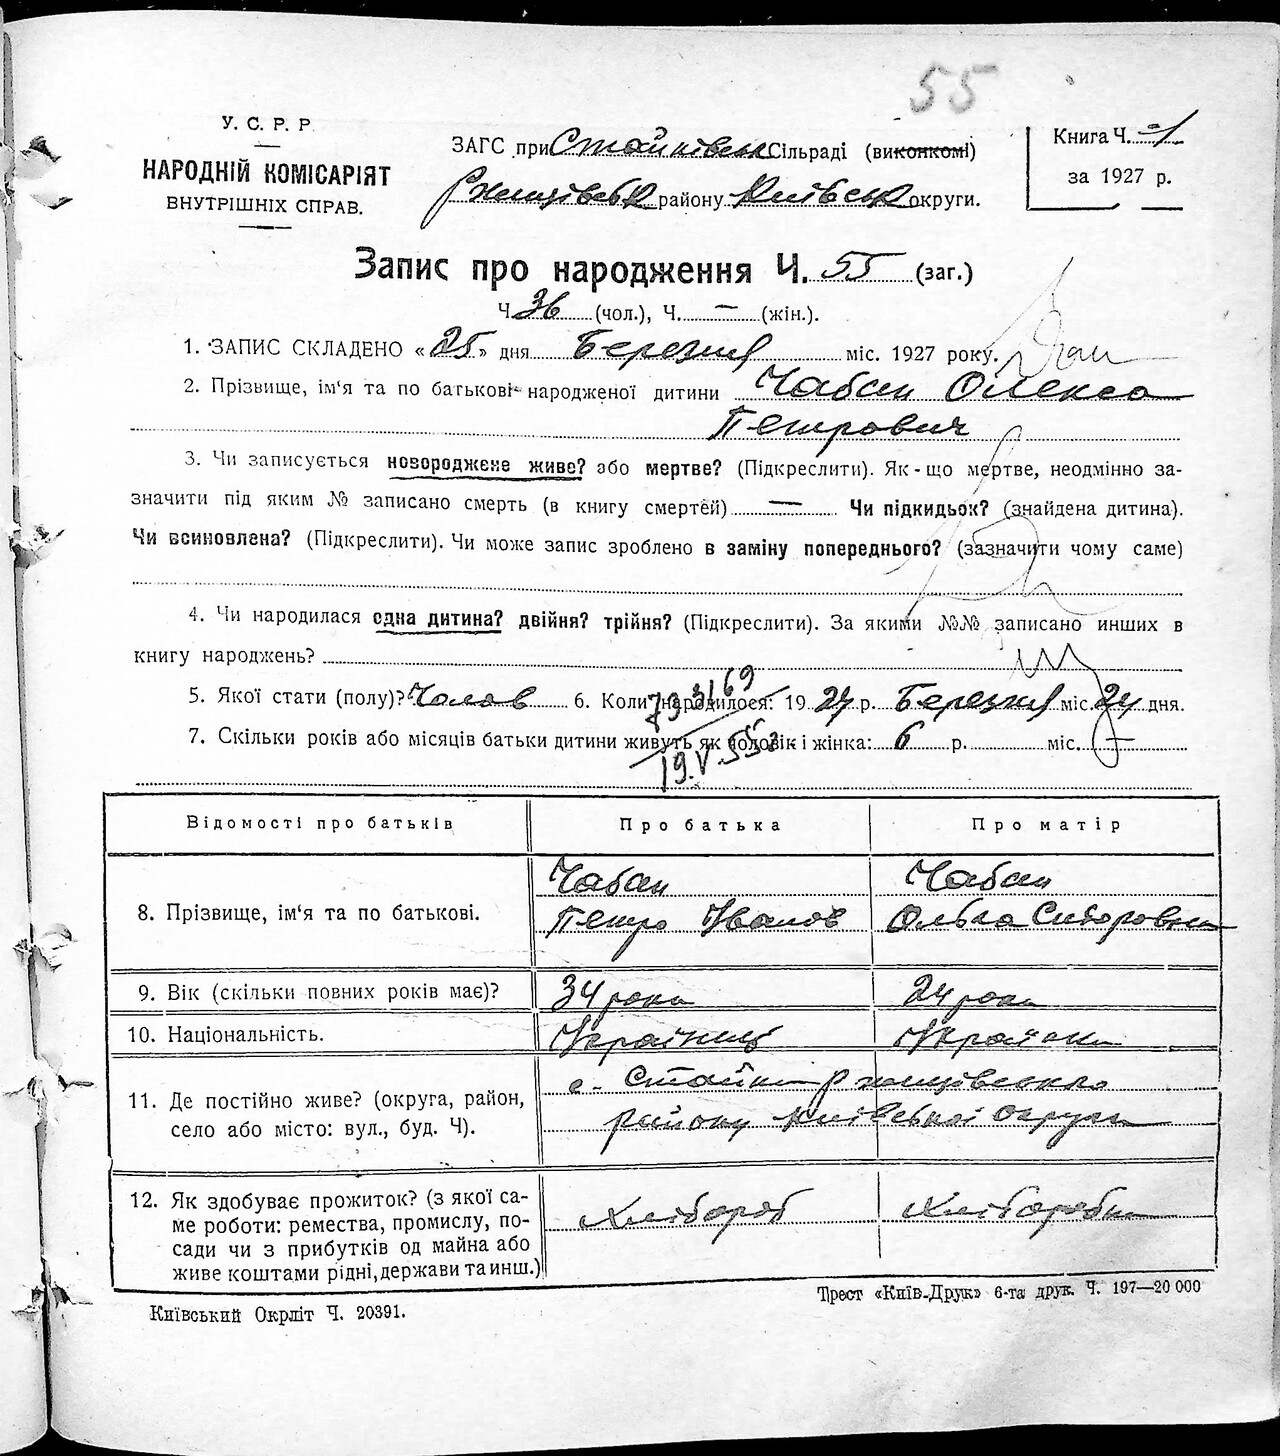 55
У. С. Р. Р
НАРОДНІЙ КОМІСАРІЯТ
ВНУТРІШНІХ СПРАВ.
ЗАГС при Стайківськ Сільраді (виконкомі)
Ржищівськ району Київськ округи.
Книга Ч. 1
за 1927 р.
Запис про народження Ч. 55 (заг.)
Ч 36 (чол.), Ч. — (жін.).
1. ЗАПИС СКЛАДЕНО «25» дня Березня міс. 1927 року.
2. Прізвище, ім'я та по батькові народженої дитини Чабан Олекса
Петрович
3. Чи записується новороджене живе? або мертве? (Підкреслити). Як-що мертве, неодмінно за-
значити під яким № записано смерть (в книгу смертей) — Чи підкидьок? (знайдена дитина).
Чи всиновлена? (Підкреслити). Чи може запис зроблено в заміну попереднього? (зазначити чому саме)
4. Чи народилася одна дитина? двійня? трійня? (Підкреслити). За якими №№ записано инших в
книгу народжень?
5. Якої стати (полу)? Чолов 6. Коли народилося: 1927 р. Березня міс. 24 дня.
7. Скільки років або місяців батьки дитини живуть як чоловік і жінка: 6 р. міс. —
19.V.55
Відомості про батьків
Про батька
Про матір
8. Прізвище, ім'я та по батькові.
Чабан
Петро Іванов
Чабан
Ольга Сидоровна
9. Вік (скільки повних років має)?
34 роки
24 роки
10. Національність.
Українець
Українка
11. Де постійно живе? (округа, район,
село або місто: вул., буд. Ч).
с. Стайки Ржищівського
району Київської округи
12. Як здобуває прожиток? (з якої са-
ме роботи: ремества, промислу, по-
сади чи з прибутків од майна або
живе коштами рідні, держави та инш.)
Хлібороб
Хліборобка
Київський Окрліт Ч. 20391.
Трест «Київ-Друк» 6-та друк. Ч. 197—20 000